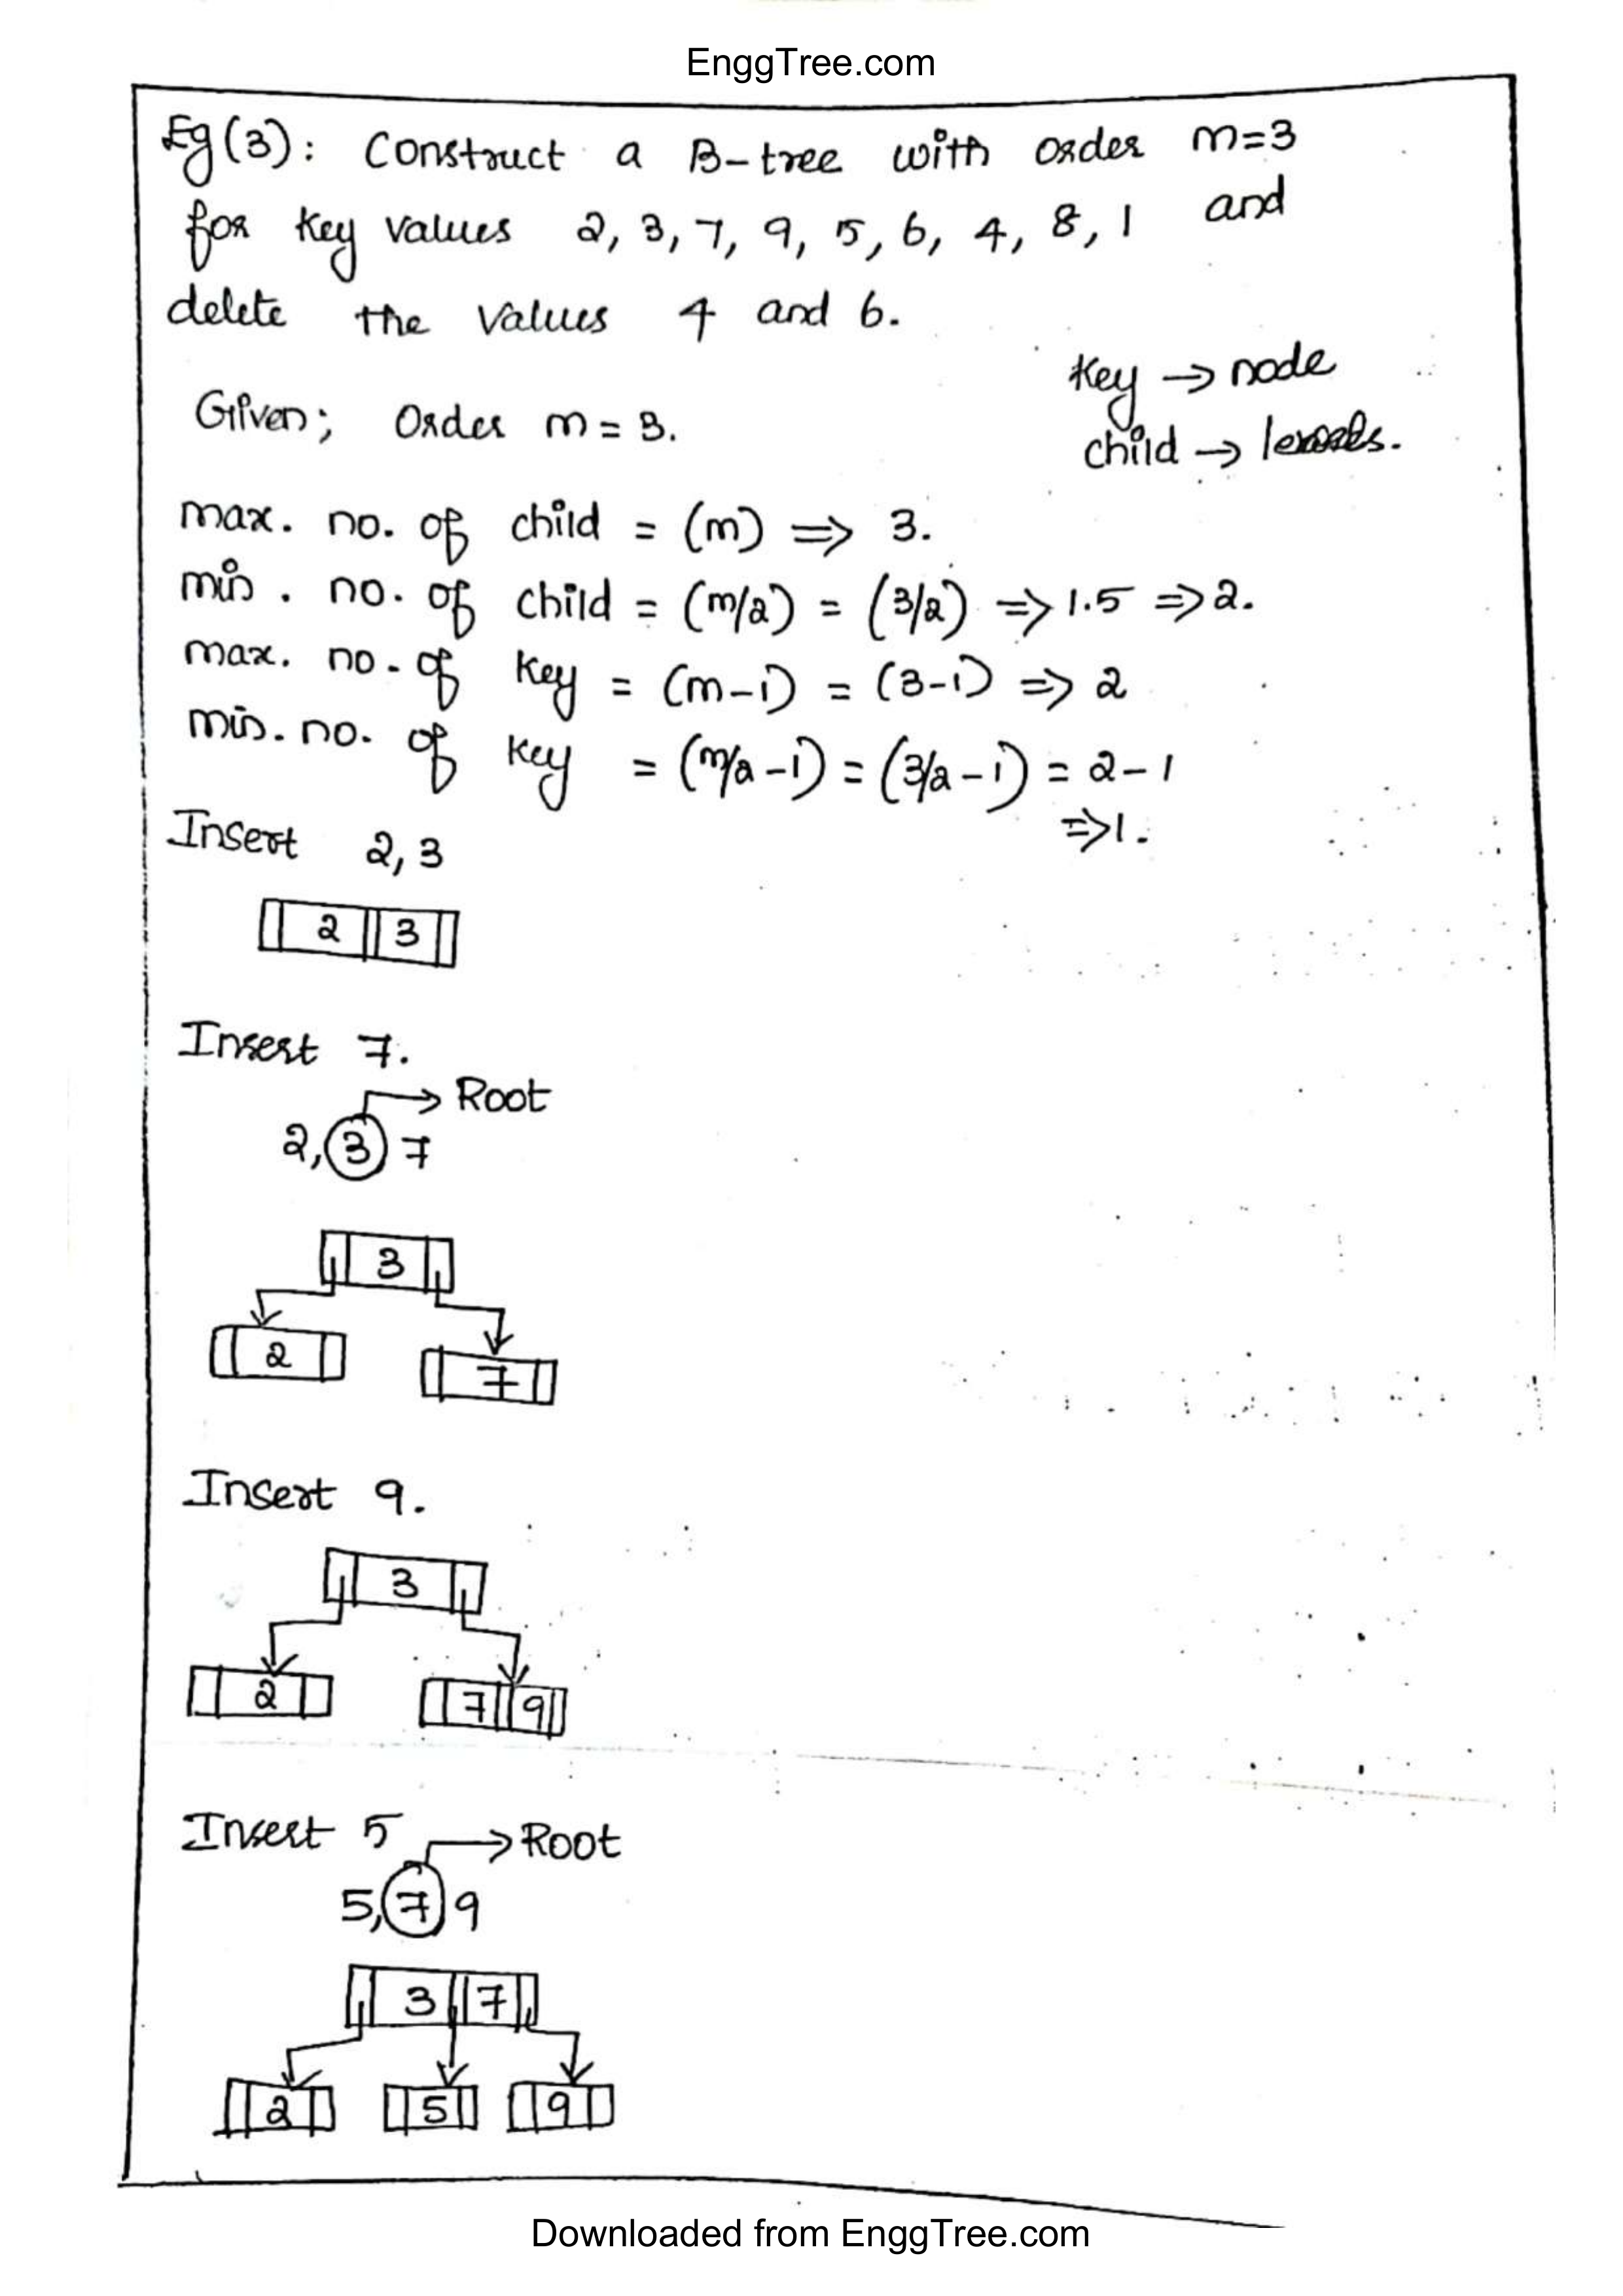 EnggTree.com
Eg(3): Construct a B-tree with order m=3
for key values 2, 3, 7, 9, 5, 6, 4, 8, 1 and
delete the values 4 and 6.
Key → node
Given; Order m = 3.
child → levels.
max. no. of child = (m) ⇒ 3.
min. no. of child = (m/2) = (3/2) ⇒ 1.5 ⇒ 2.
max. no. of key = (m-1) = (3-1) ⇒ 2
min. no. of key = (m/2 -1) = (3/2 -1) = 2-1
⇒ 1.
Insert 2, 3
2 3
Insert 7.
→ Root
2, 3 7
3
2 7
Insert 9.
3
2 7 9
Insert 5
→ Root
5, 7 9
3 7
2 5 9
Downloaded from EnggTree.com